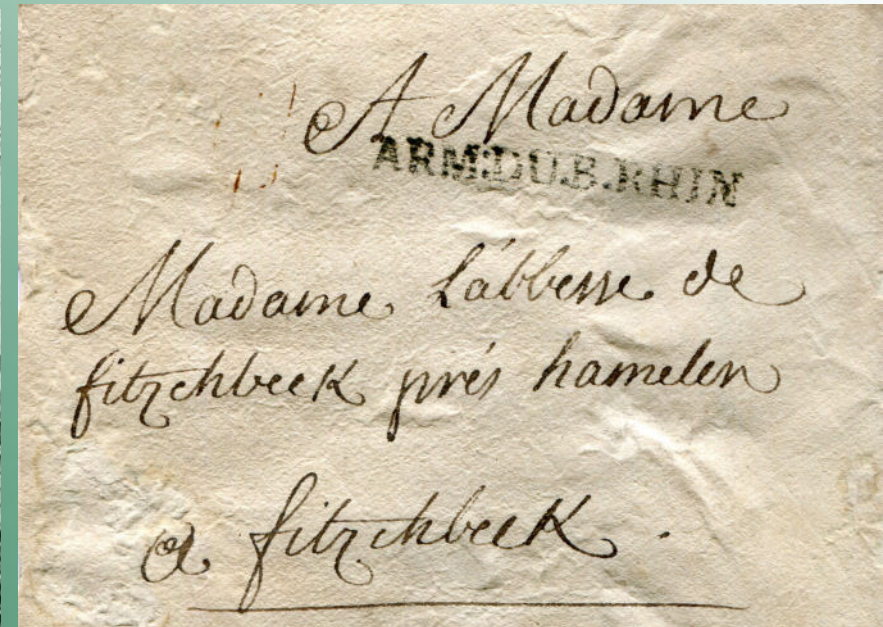 A Madame
ARM:DU.B.RHIN
Madame L'abbesse de
fitzchbeek prés hamelen
a fitzchbeek.